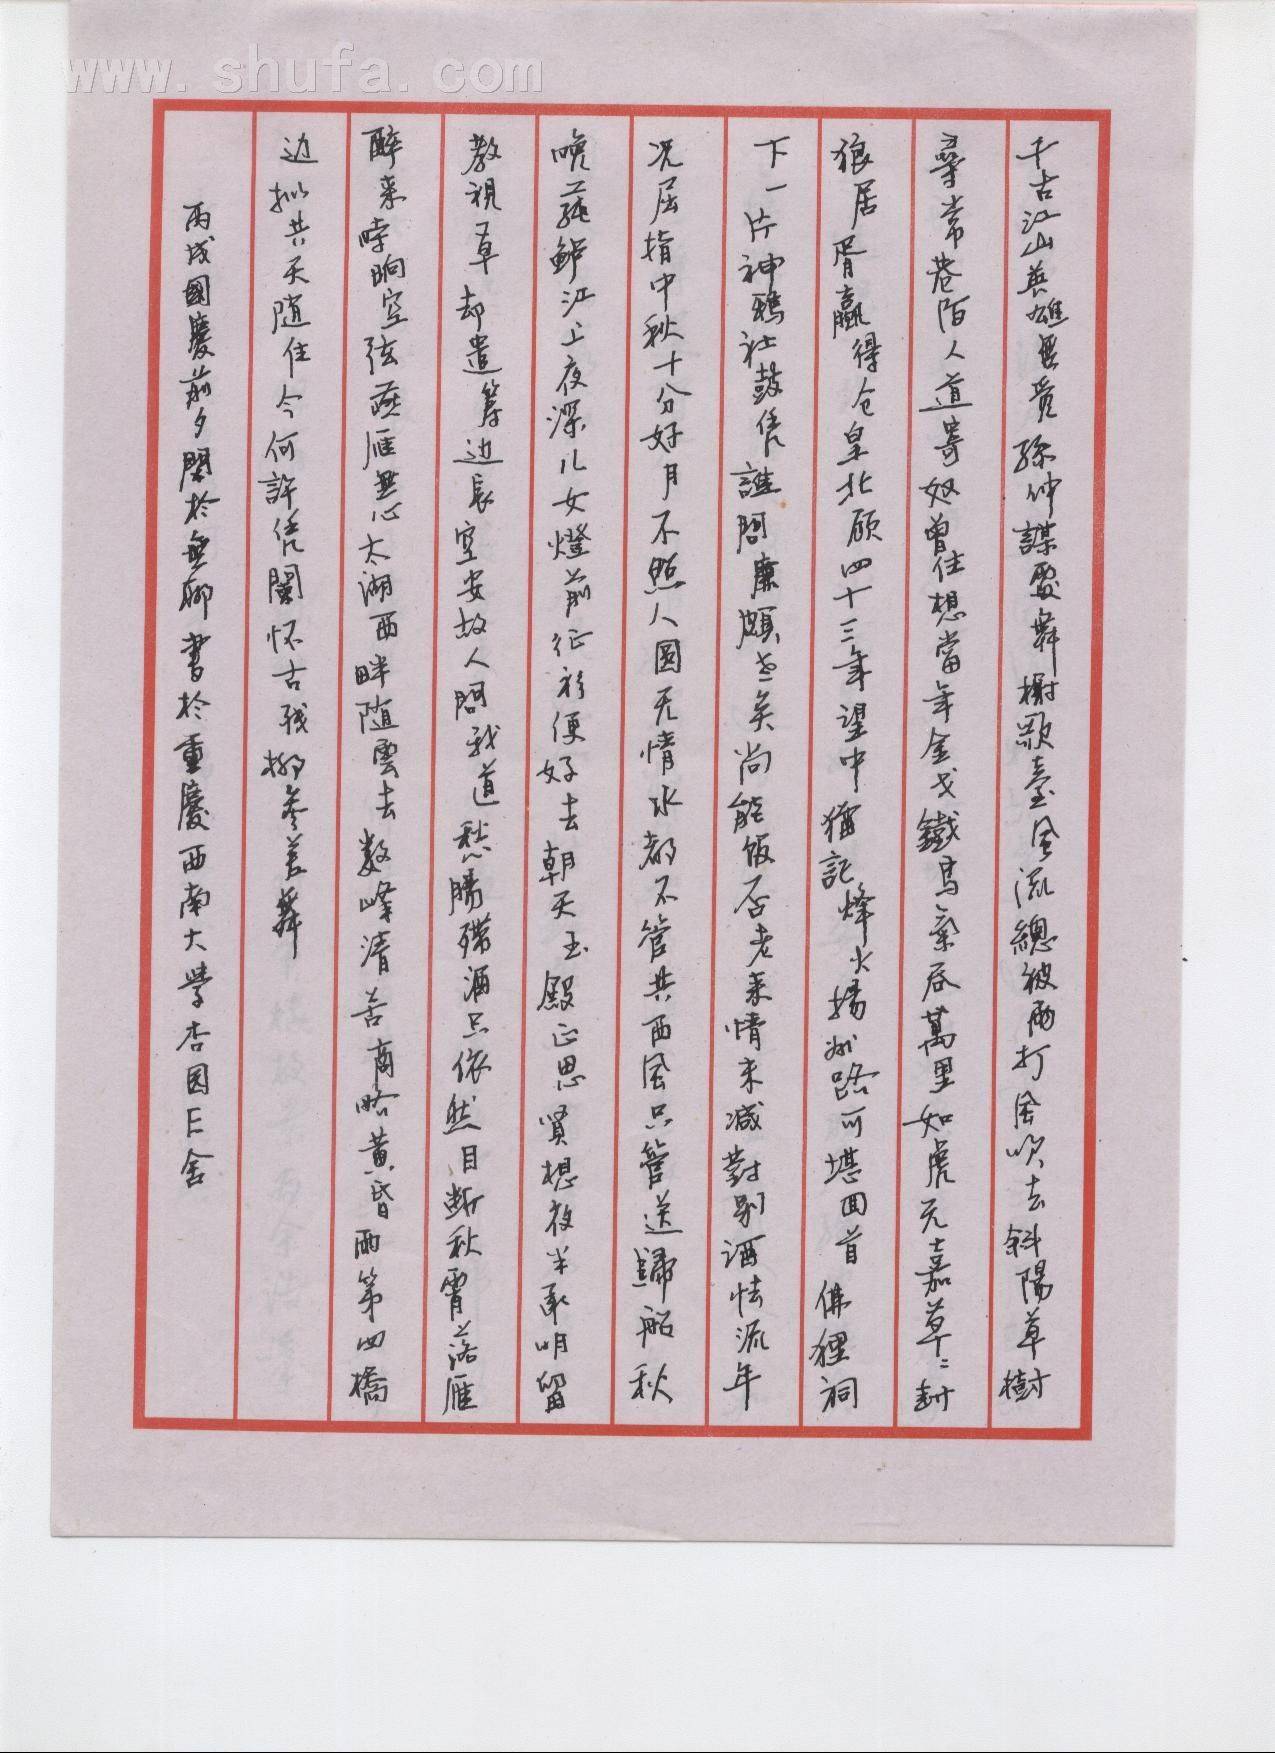 www.shufa.com
千古江山英雄無覓孫仲謀處舞榭歌臺風流總被雨打風吹去斜陽草樹
尋常巷陌人道寄奴曾住想當年金戈鐵馬氣吞萬里如虎元嘉草〻封
狼居胥贏得仓皇北顾四十三年望中猶記烽火揚州路可堪回首佛狸祠
下一片神鴉社鼓凭誰問廉頗老矣尚能饭否老来情未減對别酒怯流年
况屈指中秋十分好月不照人圆无情水都不管共西風只管送歸船秋
晚蓴鲈江上夜深儿女燈前征衫便好去朝天玉殿正思賢想夜半承明留
教視草却遣筹边長安故人問我道愁腸殢酒只依然目断秋霄落雁
醉来時响空弦燕雁無心太湖西畔随雲去數峰清苦商略黄昏雨第四橋
边拟共天随住今何許凭闌怀古残柳参差舞
丙戌國慶前夕閑於無聊書於重慶西南大學杏园E舍